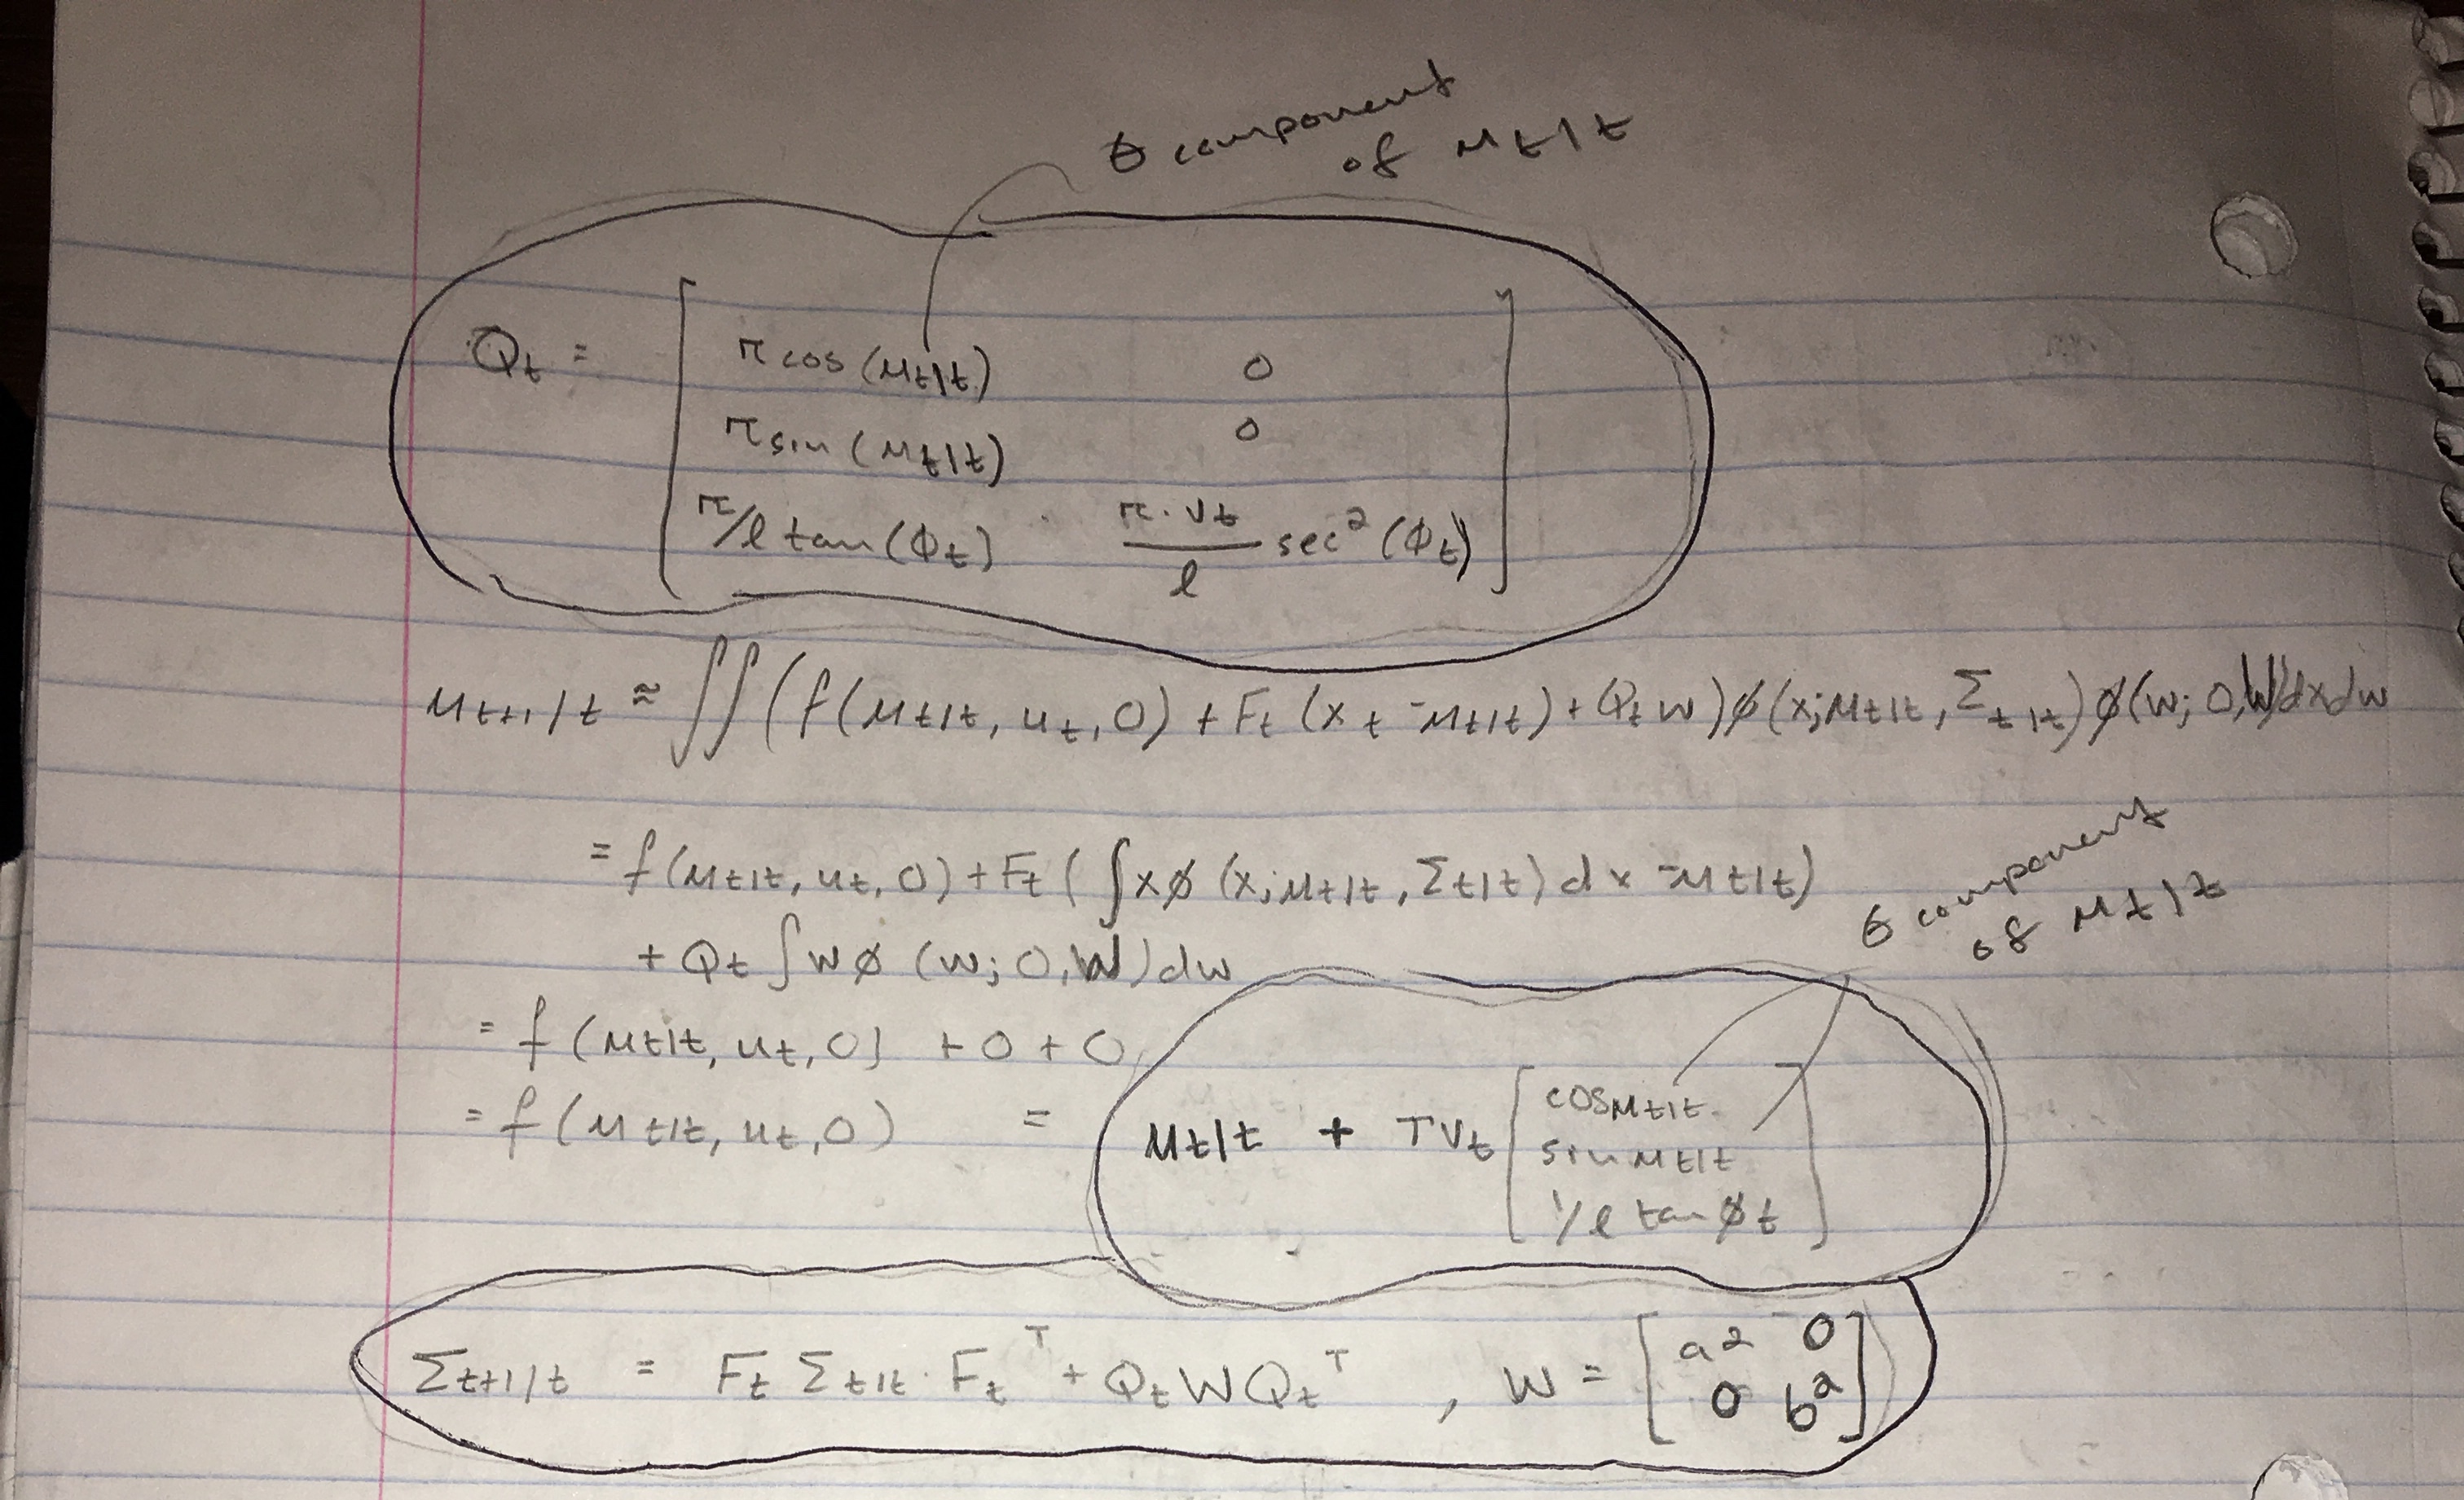 θ component
of μt|t
Qt = [ τcos(μt|t) 0
τsin(μt|t) 0
τ/l tan(ϕt) τ·vt/l sec²(ϕt) ]
μt+1|t ≈ ∫∫(f(μt|t, ut, 0) + Ft (xt - μt|t) + Qt w)ϕ(x; μt|t, Σt|t)ϕ(w; 0, W)dxdw
= f(μt|t, ut, 0) + Ft ( ∫xϕ (x; μt|t, Σt|t) dx - μt|t)
+ Qt ∫wϕ (w; 0, W)dw
θ component
of μt|t
= f (μt|t, ut, 0) + 0 + 0
= f (μt|t, ut, 0) = μt|t + τvt [ cosμt|t
sinμt|t
1/l tanϕt ]
Σt+1|t = Ft Σt|t · Ft^T + Qt W Qt^T , W = [ a² 0
0 b² ]